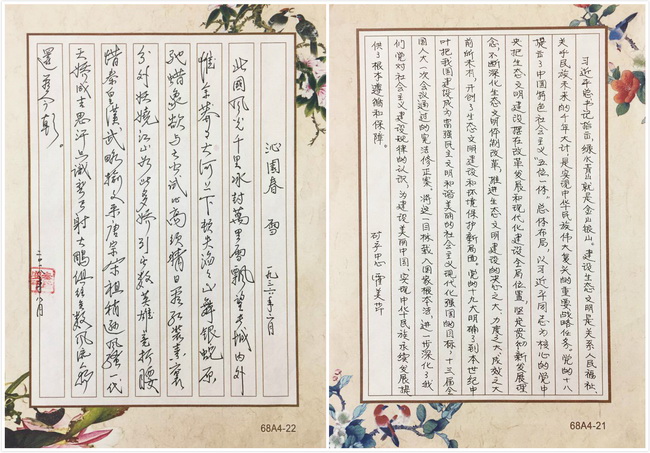 沁园春 雪
一九三六年二月
此国风光千里冰封万里雪飘望长城内外
惟余莽莽大河上下顿失滔滔山舞银蛇原
驰蜡象欲与天公试比高须晴日看红装素裹
分外妖娆江山如此多娇引无数英雄竞折腰
惜秦皇汉武略输文采唐宗宋祖稍逊风骚一代
天骄成吉思汗只识弯弓射大鹏俱往矣数风流人物
还看今朝
68A4-22
习近平总书记指出绿水青山就是金山银山。建设生态文明是关系人民福祉、
关乎民族未来的千年大计是实现中华民族伟大复兴的重要战略任务。党的十八
提出了中国特色社会主义“五位一体”总体布局，以习近平同志为核心的党中
央把生态文明建设摆在改革发展和现代化建设全局位置，坚定贯彻新发展理
念，不断深化生态文明体制改革，推进生态文明建设的决心之大、力度之大、成效之大
前所未有，开创了生态文明建设和环境保护新局面。党的十九大明确了到本世纪中
叶把我国建设成为富强民主文明和谐美丽的社会主义现代化强国的目标，十三届全
国人大一次会议通过的宪法修正案，将这一目标载入国家根本法，进一步深化了我
们党对社会主义建设规律的认识，为建设美丽中国、实现中华民族永续发展提
供了根本遵循和保障。
68A4-21